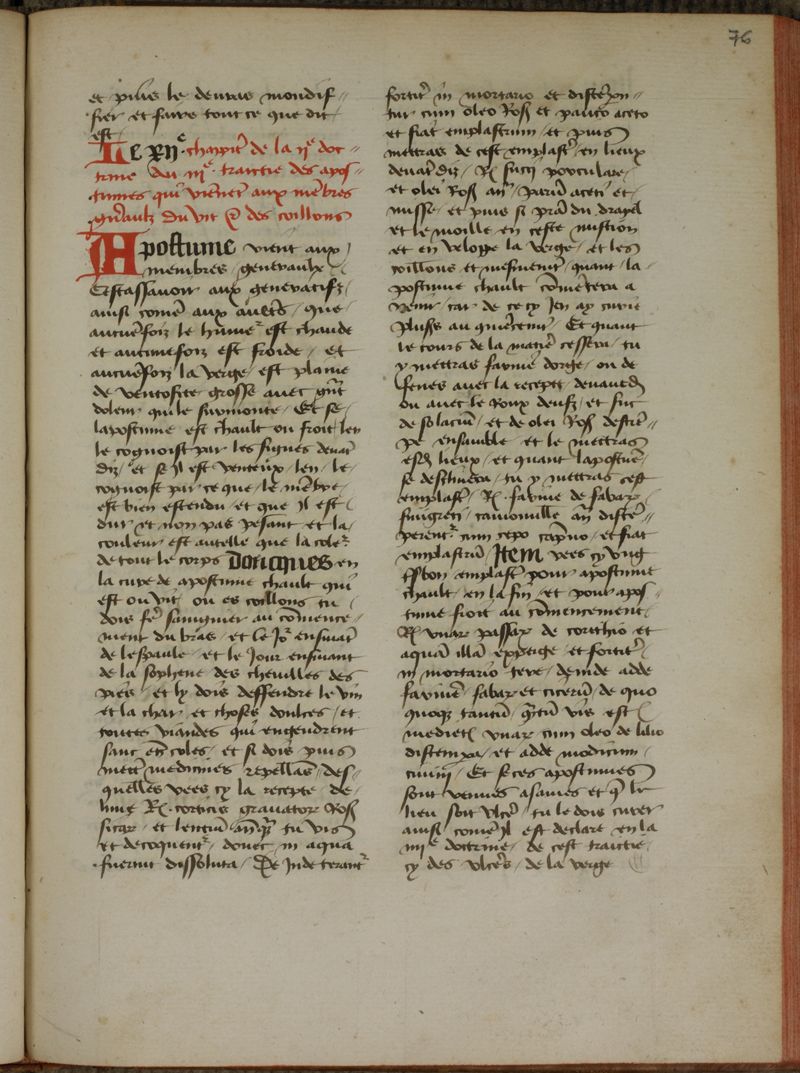 76
et puis le deuras mondif-
fier et faire tout ce que dit
est
Le xiiᵉ chapitᵉ de la iiᵉ doc-
trine du iiiᵉ traictie des apos-
tumes qui vienēt aux mēbres
gn̄aulx du vit & des coillons
Apostume vient aux
membres generaulx
Cestassauoir aux generatifz
ainsi comē aux aultrēs que
aucunesfoiz le humeᵉ est chaude
et aucunesfoiz est froide et
aucunesfoiz la verge est plaine
de ventosite grosse auec grāt
doleur qui le surmonte Et se
lapostume est chault ou froit len
le cognoist par les signes deuāt
diz et se il est venteux len le
cognoist par ce que le mēbre
est bien estendu et que il est
dur et non pas pesant et la
couleur est autelle que la coleᵉ
de tout le corps Doncques en
la cure de apostume chault qui
est ou vit ou es coillons tu
dois feᵉ sannguier au cōmence-
ment du bras et le Joᵉ ensuiāt
de lespaule et le Jour ensuiuant
de la sophene des cheuilles des
piés et ly dois deffendre le vin
et la char et choses doulces et
toutes viandes qui engendrent
sanc et coles et si dois puis
mettᵉ medicines repellās des-
quelles vees cy la recepte de
lune Rx corticis granatoꝝ Ros̄
siccaꝝ et lentiū an̄ qꝫ tu vis
et decoquentᵉ donec in aqua
fuerint dissoluta De inde terantᵉ
fortitᵉ in mortario et distēpn-
tur cum oleo Ros̄ et pauco aceto
et fiat emplastrum et puis
mettras de cest emplasᵗ en lieux
deuāt diz Rx succi portulace
et olei Ros̄ an̄ parū aceti et
misse et puis si prā du drapel
et le moille en ceste mistion
et en veloppe la verge et les
coillons et mesmemēt quant la
postume chault cōmētera a
venir car de ce cy Jen ay curie
pluss̄ au gmēcemt Et quant
le cours de la matieᵉ cessera tu
y mettras farine dorge ou de
feues auec la recepte deuāt dᵗᵉ
ou auec le roux deufz et suc
de solatrū et de olei Ros̄ destrē-
pe ensamble et le mettras
esdᶻ lieux et quant lapostume
se desclinera tu y mettras cest
emplasᵗ Rx farine de fabaꝝ
fenigreci camomille an̄ distē-
perentᵉ cum cepo caprino et fiat
emplastrū Item vees cy vng
bon emplasᵗ pour apostume
chault en la fin et pour apos-
tume froit au cōmencement
Rx vuaꝝ passaꝝ de corithio et
aquā illā exp̄ge et fortitᵉ
in mortario tere deinde adde
farinē fabaꝝ et cicerū de quo
quoqꝫ tantū qntū vis est
medietᵗ vnaꝝ cum oleo de lilio
distempa et adde modicum
cimini Et se ces apostumes
sont venues a sanies et q̄ le
lieu soit vlceᵉ tu le dois curer
ainsi comē il est declare en la
iiiiᵉ doctrine de cest traictie
cy des vlcerēs de la verge